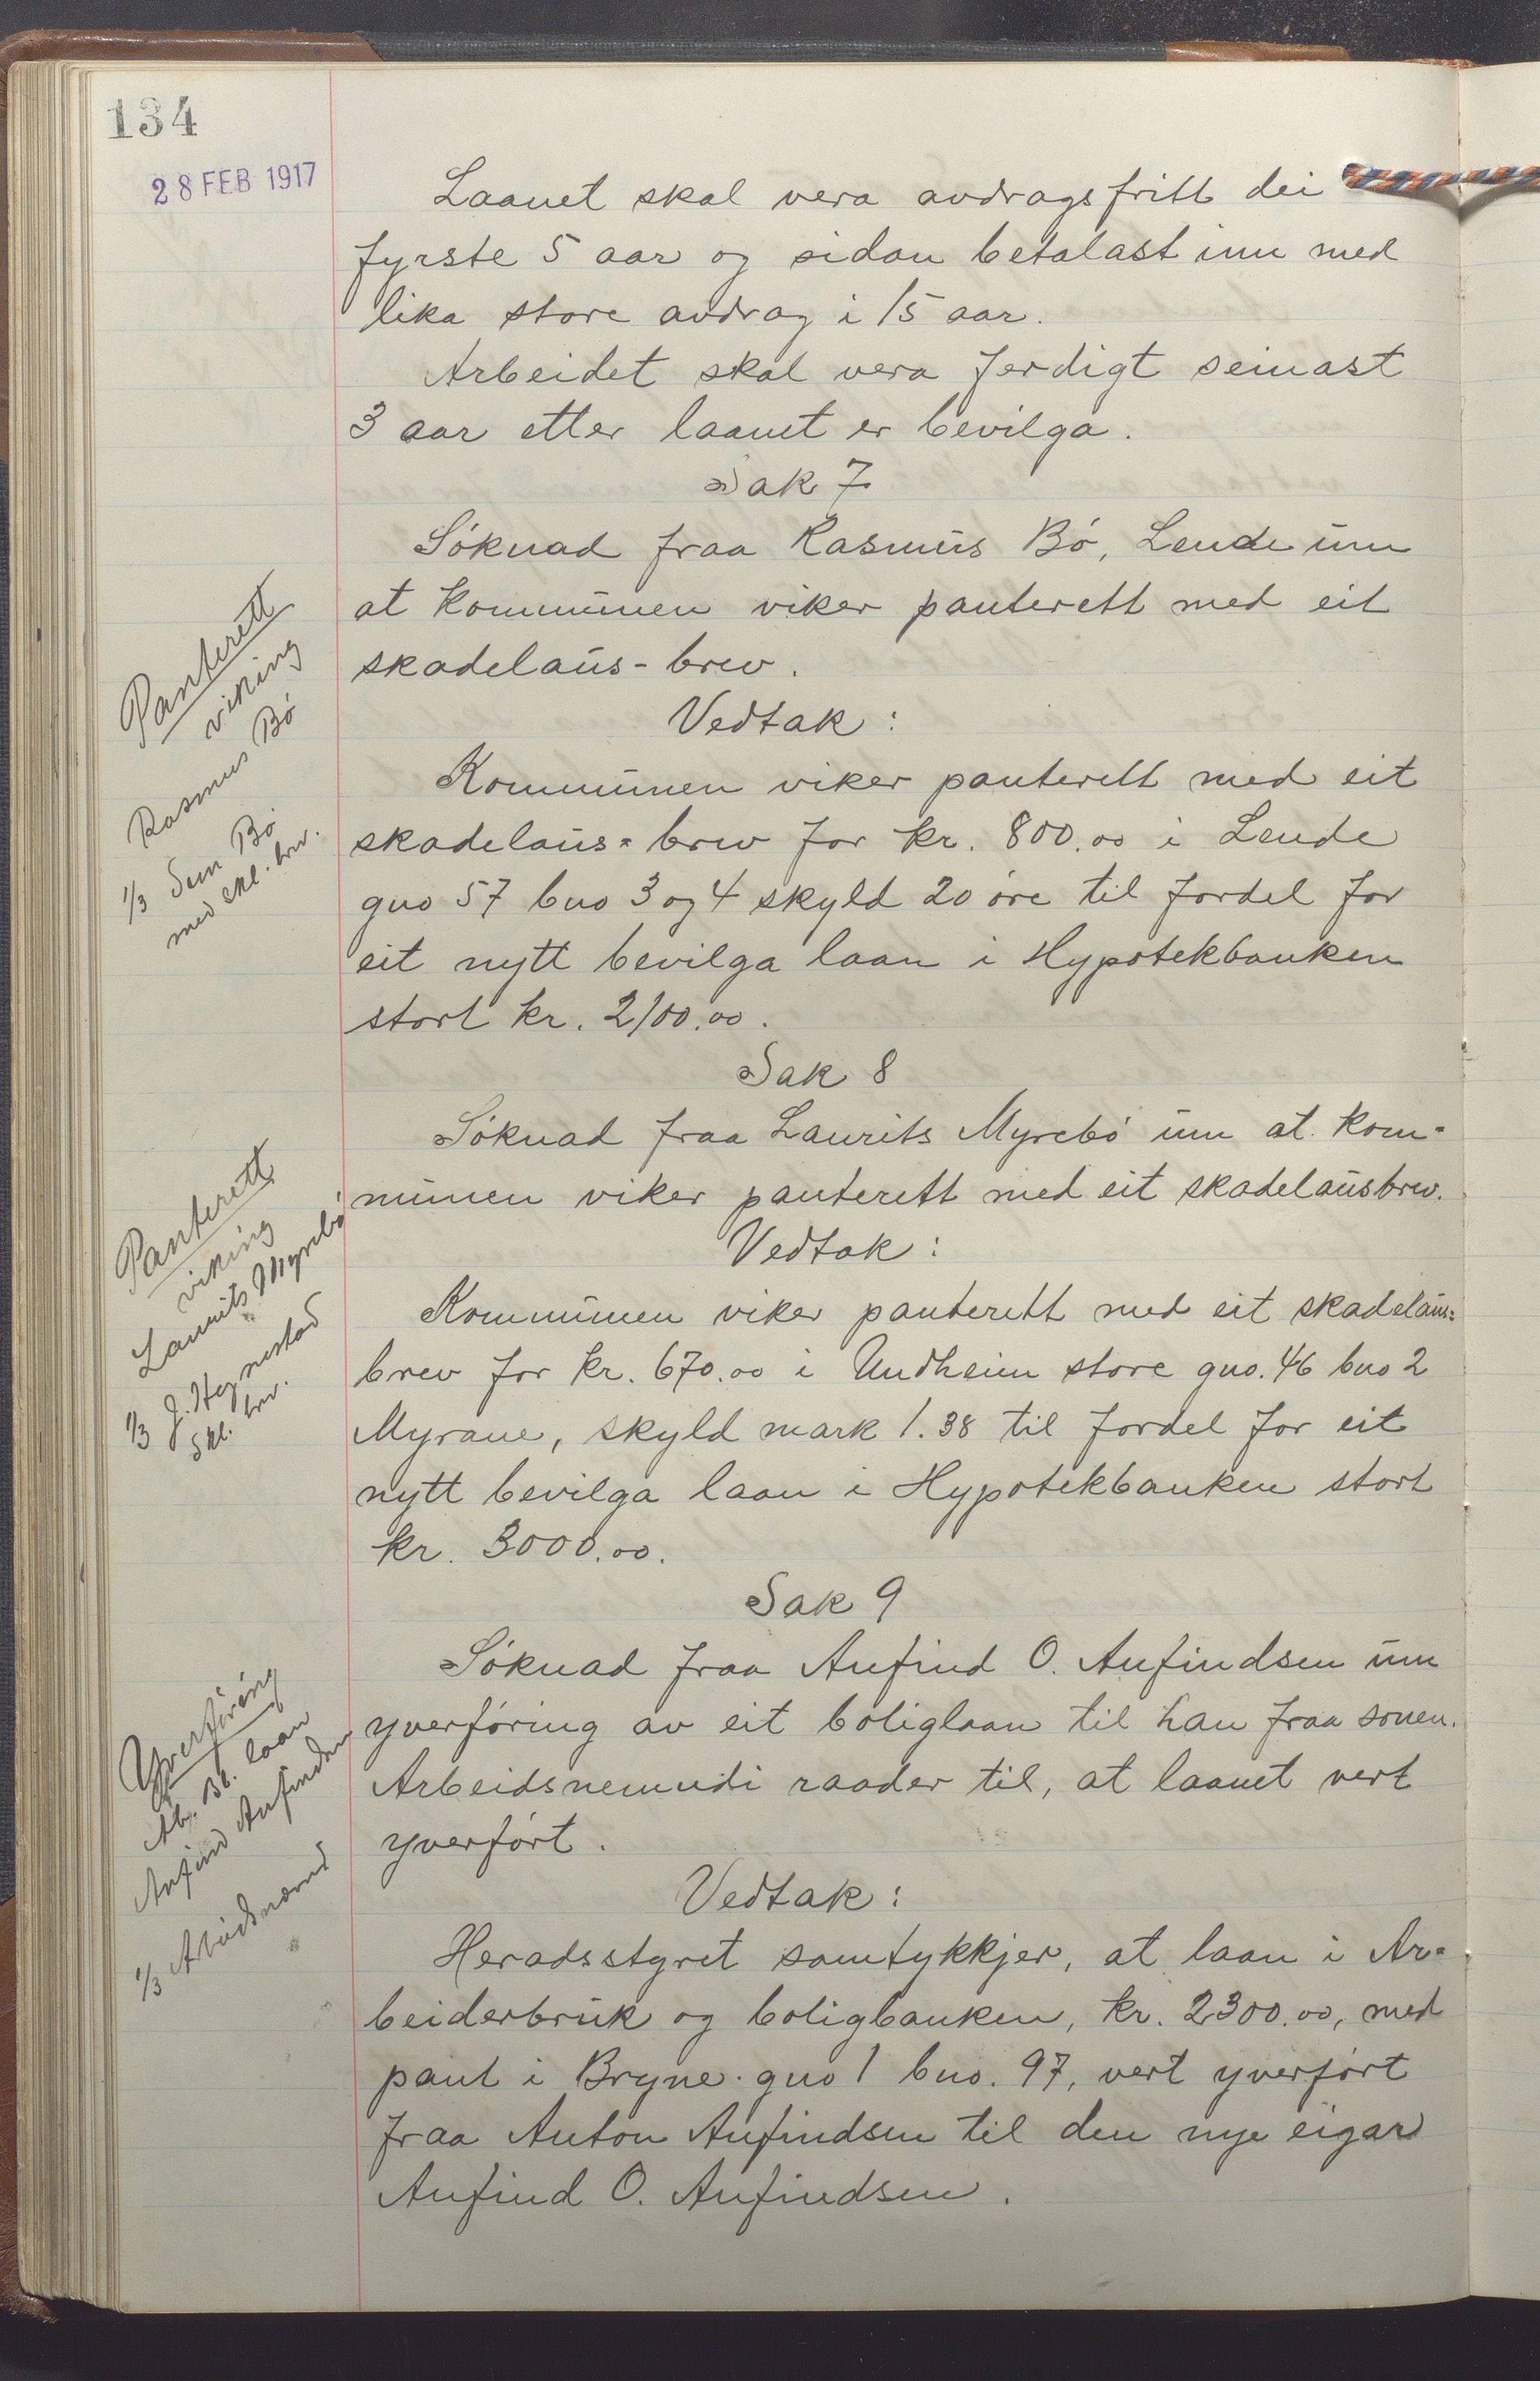 134
28 FEB 1917
Laanet skal vera avdragsfritt dei
fyrste 5 aar og sidan betalast inn med
lika store avdrag i 15 aar.
Arbeidet skal vera ferdigt seinast
3 aar etter laanet er bevilga.
Sak 7
Söknad fraa Rasmus Bö, Lende um
at kommunen viker panterett med eit
skadelaus-brev.
Vedtak:
Kommunen viker panterett med eit
skadelaus-brev for kr. 800.00 i Lende
gno 57 bno 3 og 4 skyld 20 öre til fordel for
eit nytt bevilga laan i Hypotekbanken
stort kr. 2100.00.
Panterett
viking
Rasmus Bö
1/3 Sem Bö
med skl. brv.
Sak 8
Söknad fraa Laurits Myrebö um at kom-
munen viker panterett med eit skadelausbrev.
Vedtak:
Kommunen viker panterett med eit skadelaus-
brev for kr. 670.00 i Undheim store gno. 46 bno 2
Myrane, skyld mark 1.38 til fordel for eit
nytt bevilga laan i Hypotekbanken stort
kr. 3000.00.
Panterett
viking
Laurits Myrebö
1/3 J. Hognestad
Skl. brv.
Sak 9
Söknad fraa Anfind O. Anfindsen um
yverföring av eit boliglaan til han fraa sonen.
Arbeidsnemndi raader til, at laanet vert
yverfört.
Vedtak:
Heradsstyret samtykkjer, at laan i Ar-
beiderbruk og boligbanken, kr. 2300.00, med
pant i Bryne gno 1 bno. 97, vert yverfört
fraa Anton Anfindsen til den nye eigar
Anfind O. Anfindsen.
Yverföring
Ab. Bl. laan
Anfind Anfindsen
1/3